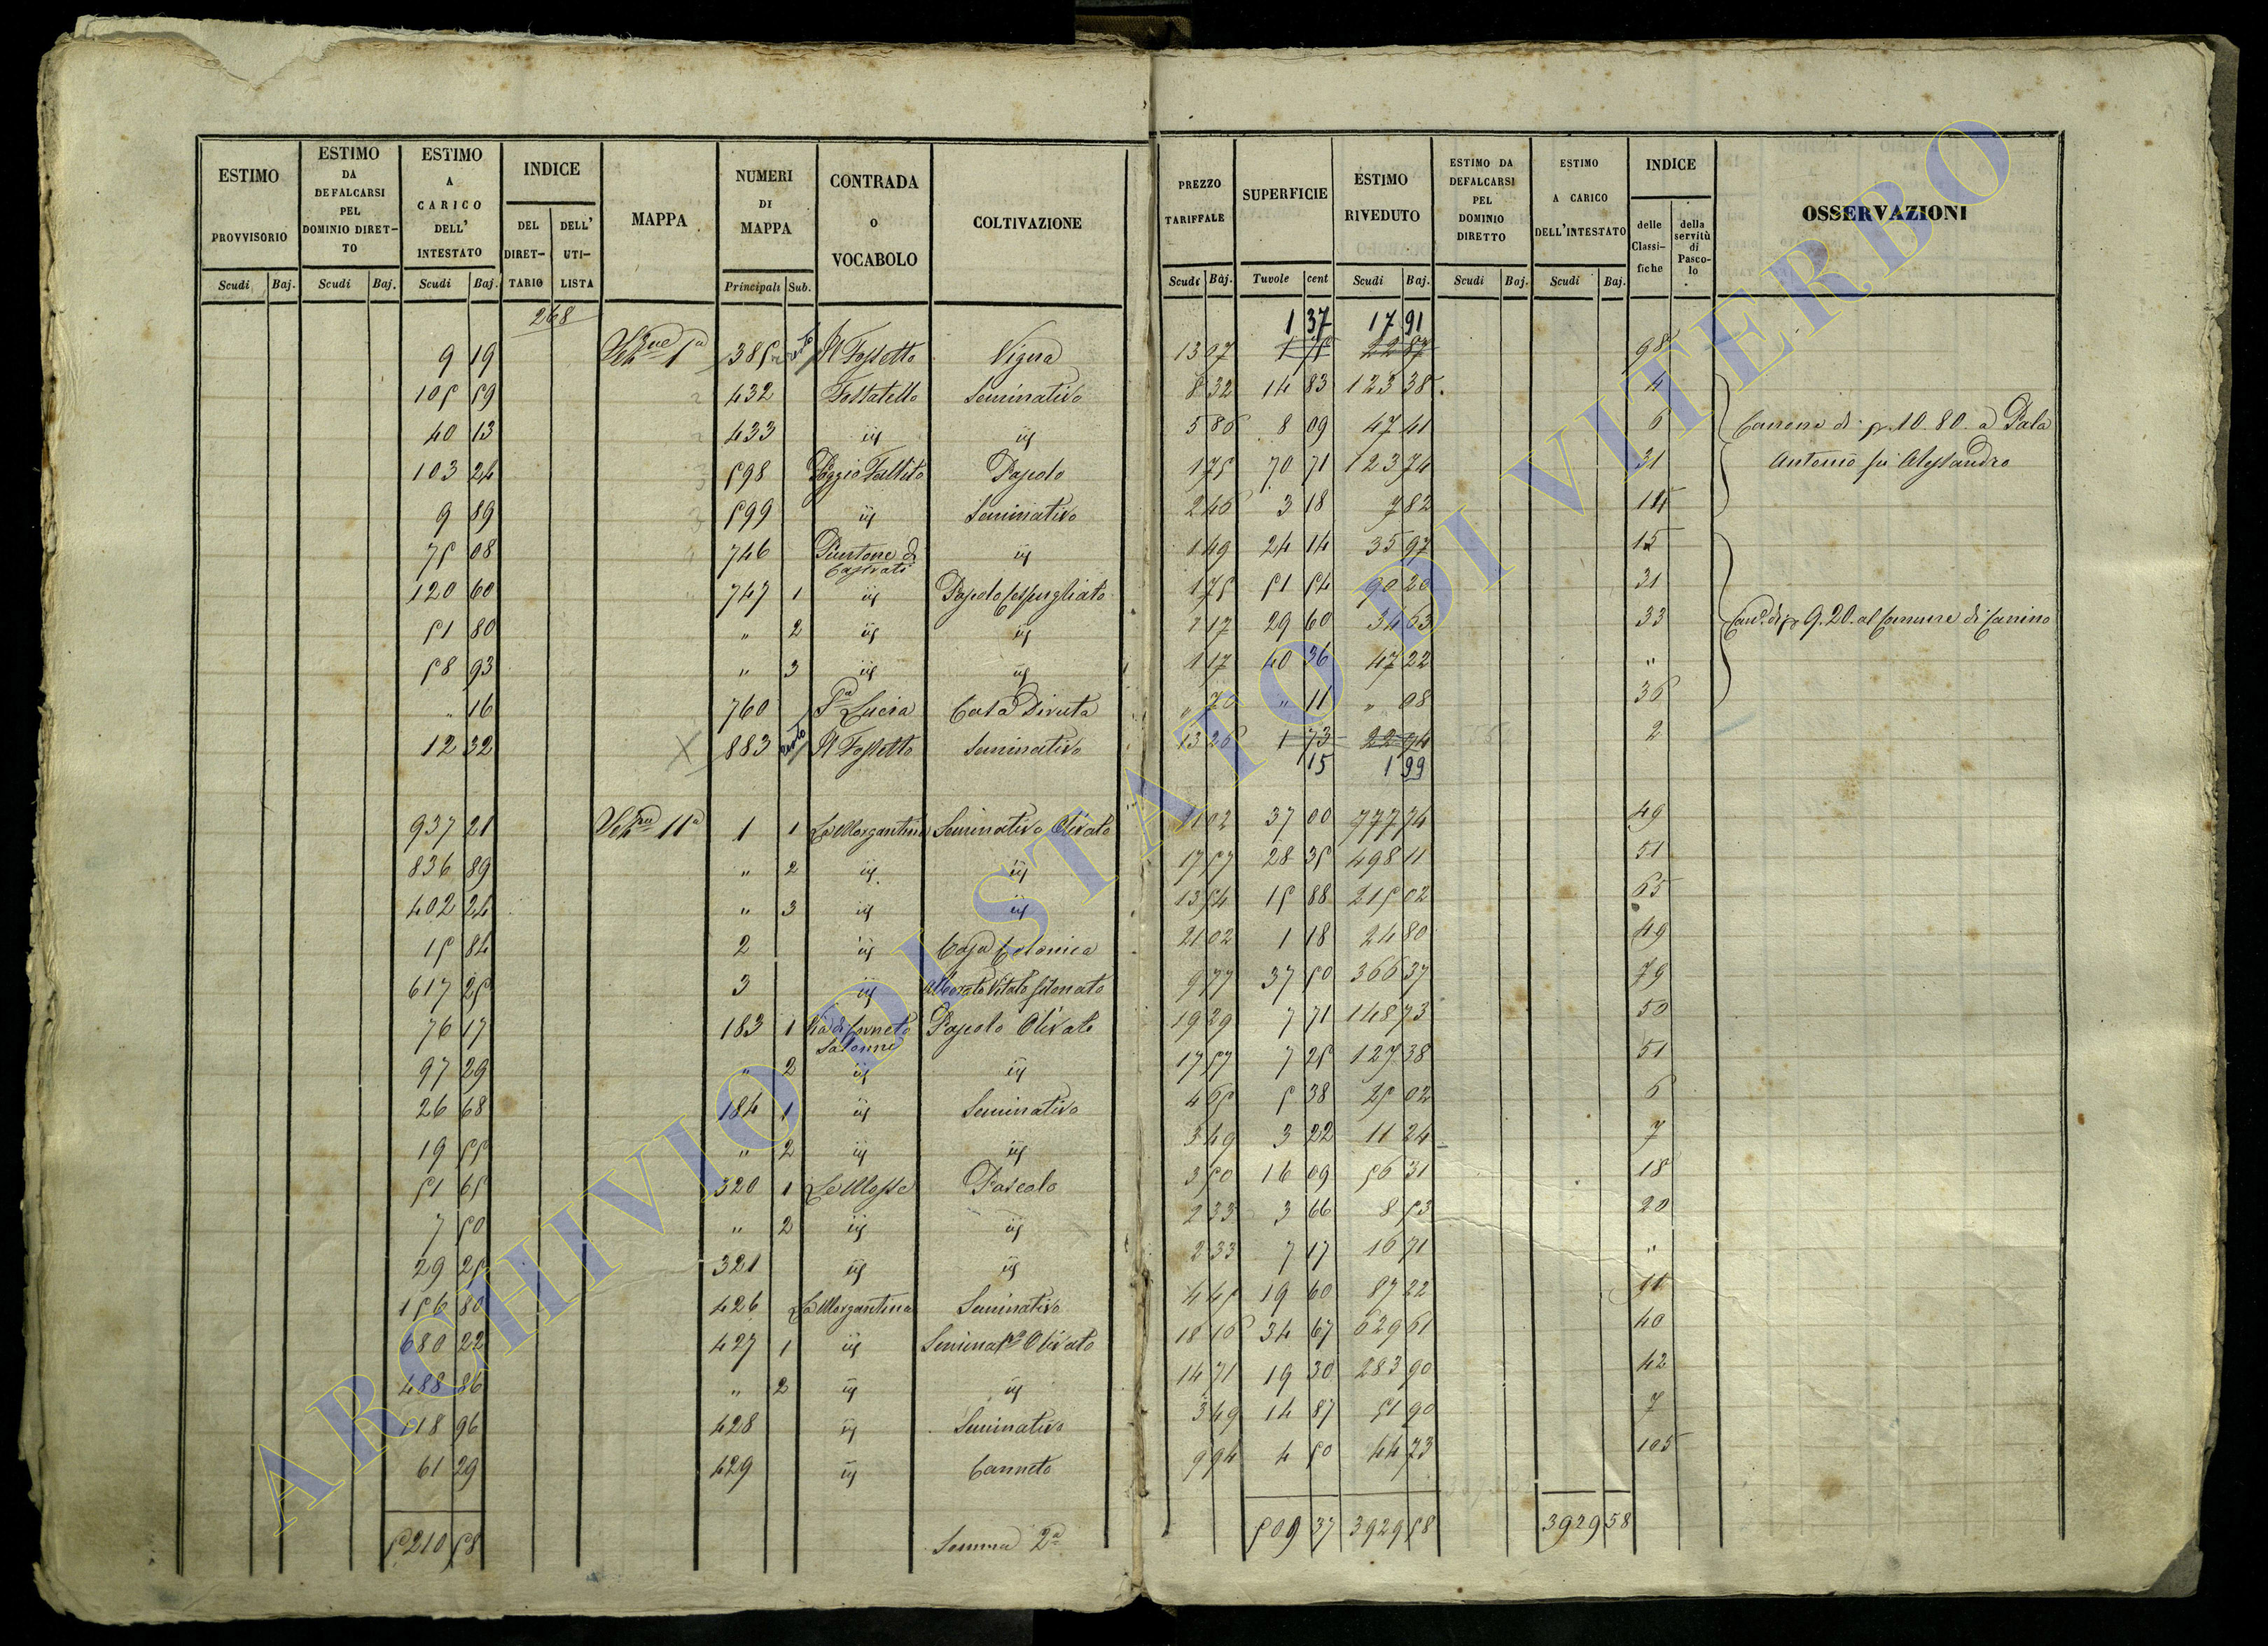 ESTIMO PROVVISORIO Scudi Baj.
ESTIMO DA DEFALCARSI PEL DOMINIO DIRET- TO Scudi Baj.
ESTIMO A CARICO DELL' INTESTATO Scudi Baj.
INDICE DEL DIRET- TARIO DELL' UTI- LISTA
MAPPA
NUMERI DI MAPPA Principali Sub.
CONTRADA O VOCABOLO
COLTIVAZIONE
PREZZO TARIFFALE Scudi Baj.
SUPERFICIE Tavole cent
ESTIMO RIVEDUTO Scudi Baj.
ESTIMO DA DEFALCARSI PEL DOMINIO DIRETTO Scudi Baj.
ESTIMO A CARICO DELL'INTESTATO Scudi Baj.
INDICE delle Classi- fiche della servitù di Pasco- lo
OSSERVAZIONI
268
1 37 17 91
9 19 1ª 385 resto Il Fossetto Vigna 13 07 1 75 22 87 98
105 59 432 Fossatello Seminativo 8 32 14 83 123 38 4
40 13 433 iis iis 5 86 8 09 47 41 6 Canone di 10.80. a Pala
103 24 598 Poggio Fallito Pascolo 1 75 70 71 123 74 31 Antonio fu Alessandro
9 89 599 iis Seminativo 2 46 3 18 7 82
75 08 746 Piantone di Castrati iis 1 49 24 14 35 97 15
120 60 747 1 iis Pascolo Cespugliato 1 75 51 54 90 20 31
51 80 " 2 iis iis 1 17 29 60 34 63 33 9.20. al Comune di Canino
58 93 " 3 iis iis 1 17 40 36 47 22 "
" 16 760 Sª Lucia Casa Diruta " 70 " 11 " 08 36
12 32 883 resto Il Fossetto Seminativo 13 26 1 73 22 94 2
15 1 99
937 21 11ª 1 1 La Morgantina Seminativo Olivato 21 02 37 00 777 74 49
836 89 " 2 iis iis 17 57 28 35 498 11 51
402 24 " 3 iis iis 13 54 15 88 215 02 65
15 84 2 iis Casa Colonica 21 02 1 18 24 80 49
617 25 3 iis Alborato Vitato 9 77 37 50 366 37 79
76 17 183 1 Via di Corneto Pascolo Olivato 19 29 7 71 148 73 50
97 29 " 2 iis iis 17 57 7 25 127 38 51
26 68 184 1 iis Seminativo 4 65 5 38 25 02 6
19 55 " 2 iis iis 3 49 3 22 11 24 7
51 65 320 1 Le Mosse Pascolo 3 50 16 09 56 31 18
7 50 " 2 iis iis 2 33 3 66 8 53 20
29 25 321 iis iis 2 33 7 17 16 71 "
156 80 426 La Morgantina Seminativo 4 45 19 60 87 22 11
680 22 427 1 iis Seminat.º Olivato 18 16 34 67 629 61 40
488 86 " 2 iis iis 14 71 19 30 283 90 42
118 96 428 iis Seminativo 3 49 14 87 51 90 7
61 29 429 iis Canneto 9 94 4 50 44 73 105
5210 58 Somma 2ª 509 37 3929 58 3929 58
ARCHIVIO DI STATO DI VITERBO